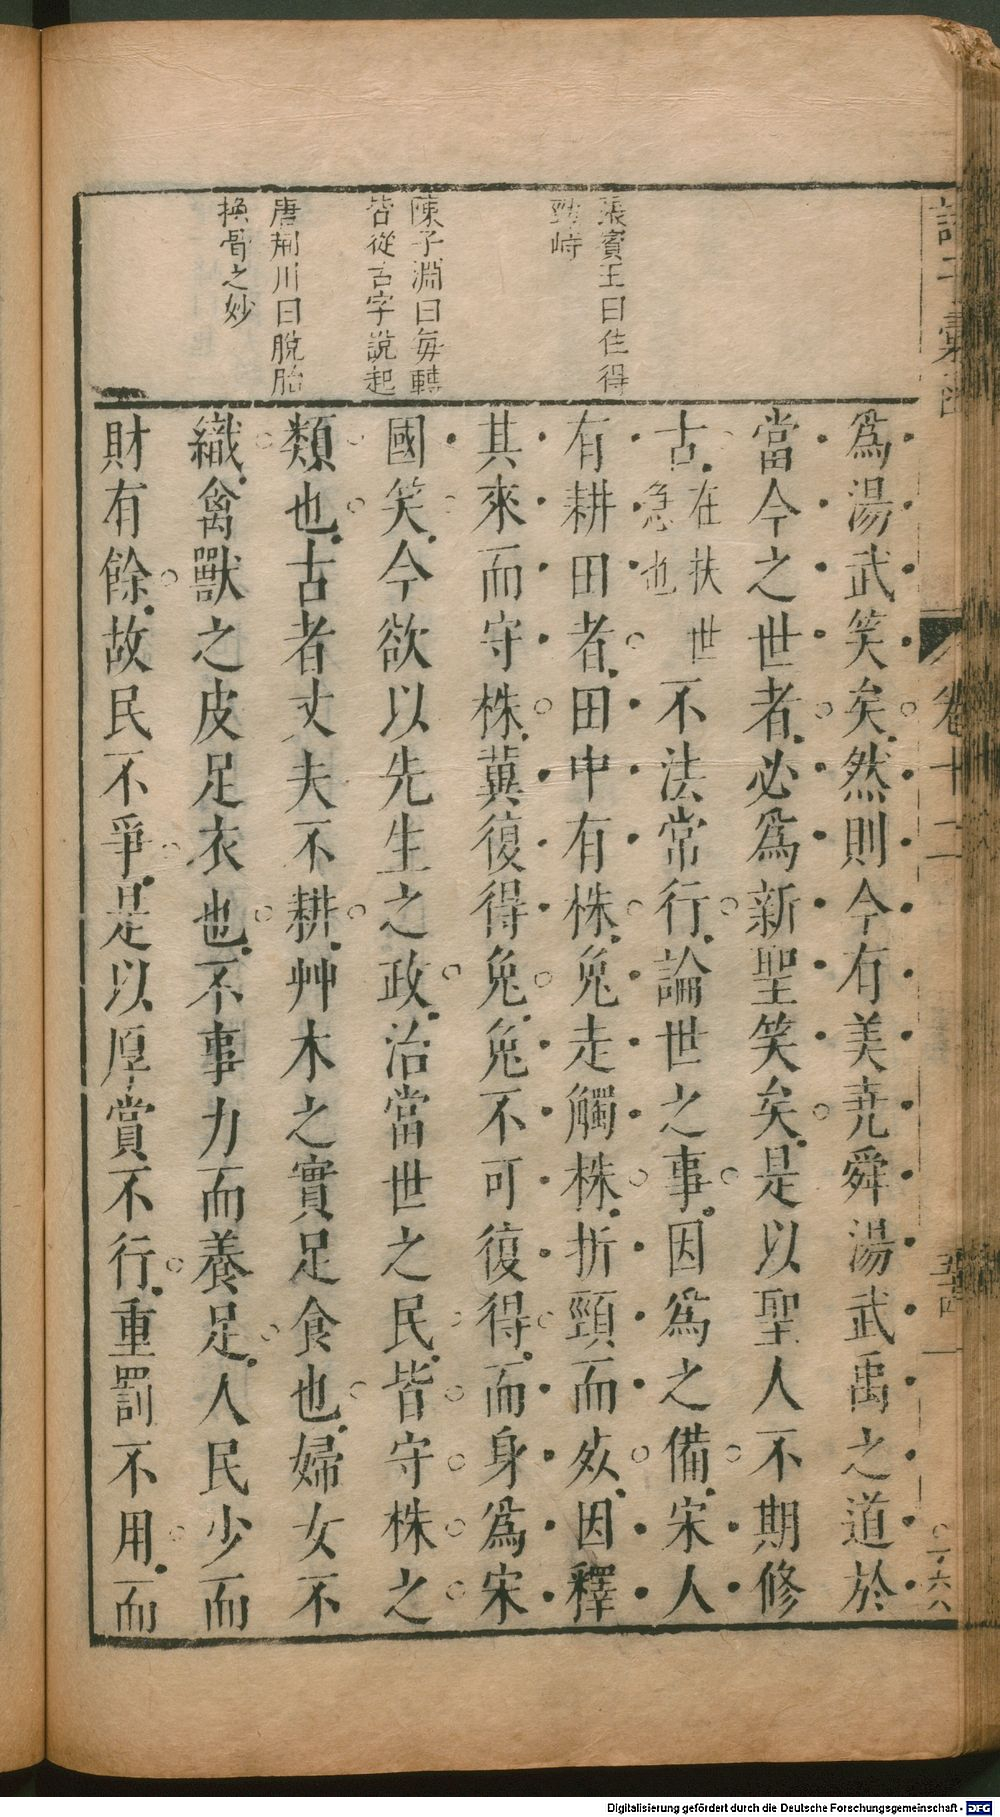 諸子彙函
卷十二
張賓王曰住得
勁峙
陳子淵曰每轉
皆從古字說起
唐荊川曰脫胎
換骨之妙
爲湯武笑矣然則今有美尭舜湯武禹之道於
當今之世者必爲新聖笑矣是以聖人不期修
古在扶世急也不法常行論世之事因爲之備宋人
有耕田者田中有株兔走觸株折頸而死因釋
其來而守株冀復得兔兔不可復得而身爲宋
國笑今欲以先生之政治當世之民皆守株之
類也古者丈夫不耕艸木之實足食也婦女不
織禽獸之皮足衣也不事力而養足人民少而
財有餘故民不爭是以厚賞不行重罰不用而
Digitalisierung gefördert durch die Deutsche Forschungsgemeinschaft - DFG